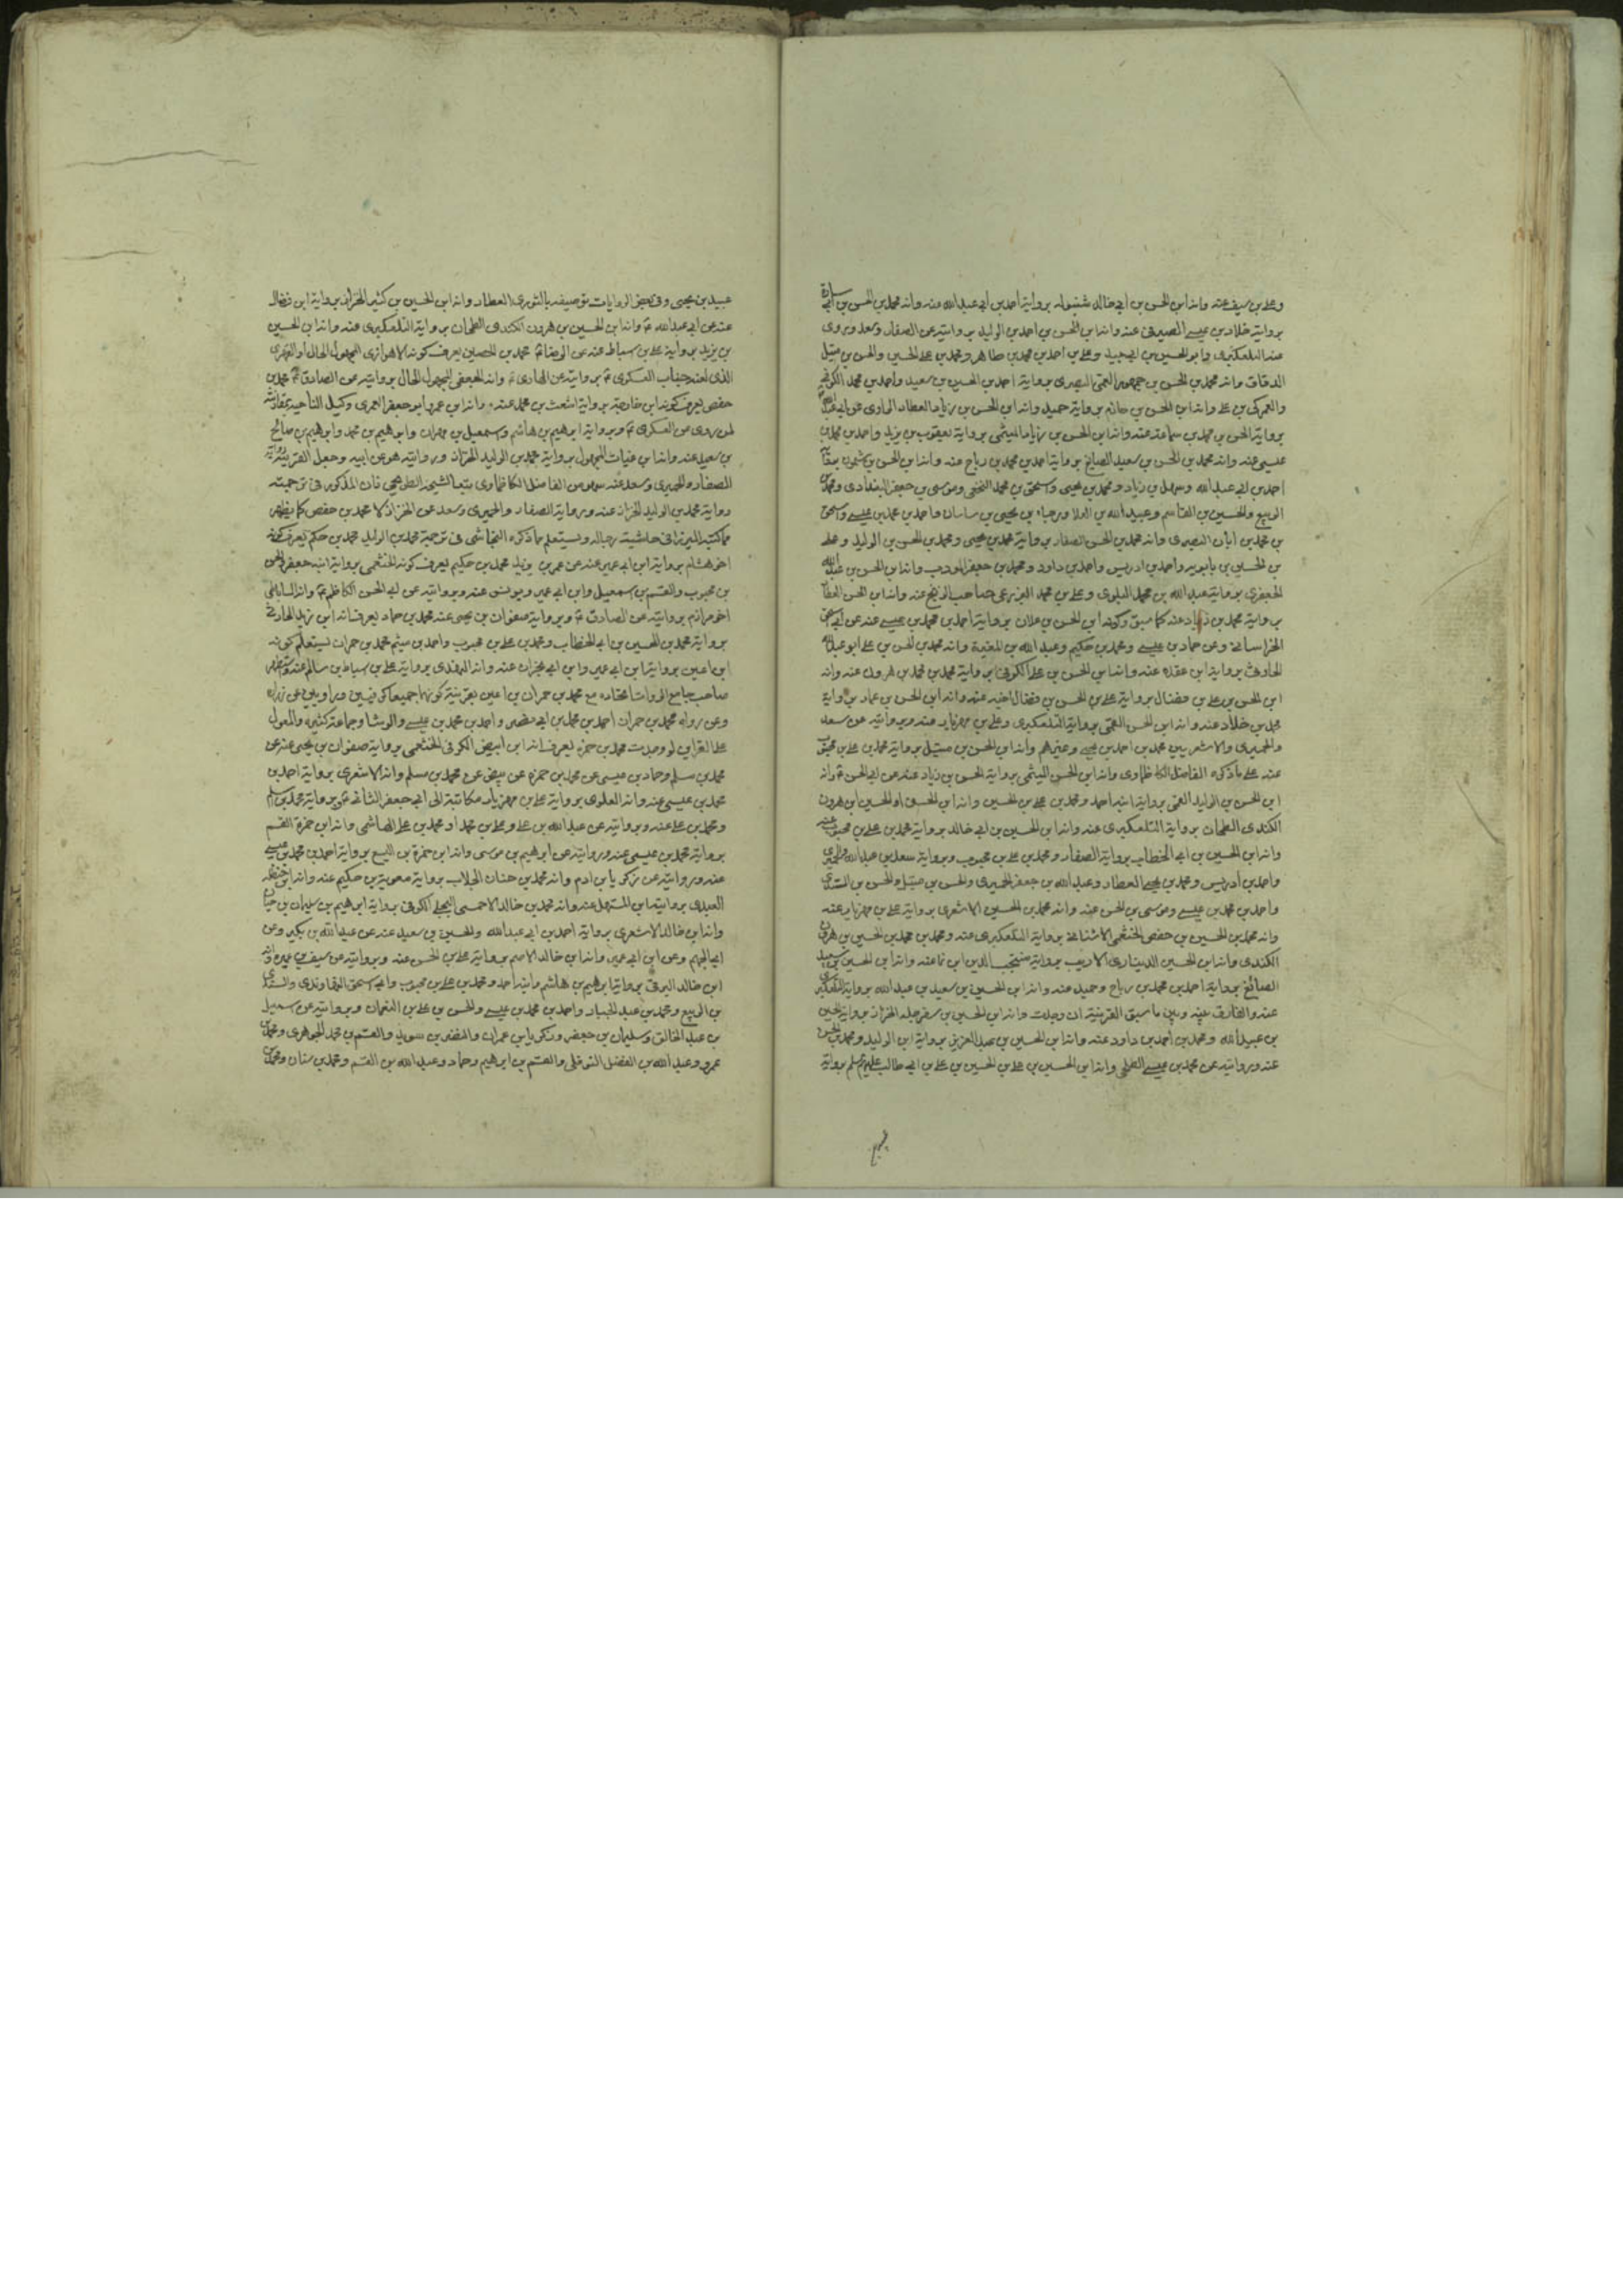 وعلى بن سيف عنه وانه ابن الحسن بن ابى خالد شنبوله برواية احمد بن ابى عبدالله عنه وانه محمد بن الحسن بن ابى سارة
برواية خلاد بن عيسى الصيرفى عنه وانه ابن الحسن بن احمد بن الوليد بروايته عن الصفار وسعد وبروى
عنه التلعكبرى وابو الحسين بن ابى جيد وعلى بن احمد بن محمد بن طاهر ومحمد بن على الحسين والحسن بن متيل
الدقاق وانه محمد بن الحسن بن جمهور العمى البصرى برواية احمد بن الحسين بن سعيد واحمد بن محمد الكوفى
والعمركى بن على وانه ابن الحسن بن حازم برواية حميد وانه ابن الحسن بن زياد العطار الراوى عن ابى عبدالله
برواية الحسن بن محمد بن سماعة عنه وانه ابن الحسن بن زياد الميثمى برواية يعقوب بن يزيد واحمد بن محمد بن
عيسى عنه وانه محمد بن الحسن بن سعيد الصايغ برواية احمد بن محمد بن رباح عنه وانه ابن الحسن بن شمون برواية
احمد بن ابى عبدالله وسهل بن زياد ومحمد بن يحيى واسحق بن محمد النخعى وموسى بن جعفر البغدادى ومحمد بن
الربيع والحسين بن القاسم وعبيدالله بن العلا ورجاء بن يحيى بن سامان واحمد بن محمد بن عيسى واسحق
بن محمد بن ابان البصرى وانه محمد بن الحسن الصفار برواية محمد بن يحيى ومحمد بن الحسن بن الوليد وعلى
بن الحسين بن بابويه واحمد بن ادريس واحمد بن داود ومحمد بن جعفر المودب وانه ابن الحسن بن عبدالله
الجعفرى برواية عبدالله بن محمد البلوى وعلى بن محمد البزرعى صاحب الزنج عنه وانه ابن الحسن العطار
برواية محمد بن زياد عنه كما سبق وكونه ابن الحسن بن علان برواية احمد بن محمد بن عيسى عنه عن ابى الحسن
الخراسانى وعن حماد بن عيسى ومحمد بن حكيم وعبدالله بن المغيرة وانه محمد بن الحسن بن على ابو عبدالله
الحاربى برواية ابن عقده عنه وانه ابن الحسن بن على الكوفى برواية محمد بن محمد بن هرون عنه وانه
ابن الحسن بن على بن فضال برواية على بن الحسن بن فضال اخيه عنه وانه ابن الحسن بن عمار برواية
محمد بن خلاد عنه وانه ابن الحسن القمى برواية التلعكبرى وعلى بن مهزيار عنه وبروايته عن سعد
والحميرى والاشعريين محمد بن احمد بن يحيى وغيرهم وانه ابن الحسن بن متيل برواية محمد بن على بن محبوب
عنه على ما ذكره الفاضل الكاظماوى وانه ابن الحسن الميثمى برواية الحسن بن زياد عنه عن ابى الحسن ع وانه
ابن الحسن بن الوليد القمى برواية ابنه احمد ومحمد بن على بن الحسين وانه ابن الحسن او الحسين ابن هرون
الكندى الطحان برواية التلعكبرى عنه وانه ابن الحسين بن ابى خالد برواية محمد بن على بن محبوب عنه
وانه ابن الحسين بن ابى الخطاب برواية الصفار ومحمد بن على بن محبوب وبرواية سعد بن عبدالله والحميرى
واحمد بن ادريس ومحمد بن يحيى العطار وعبدالله بن جعفر الحميرى والحسن بن متيل والحسن بن السندى
واحمد بن محمد بن عيسى وموسى بن الحسن عنه وانه محمد بن الحسين الاشعرى برواية على بن مهزيار عنه
وانه محمد بن الحسين بن حفص الخثعمى الاشنانى برواية التلعكبرى عنه ومحمد بن محمد بن الحسين بن هرون
الكندى وانه ابن الحسين الدينارى الاديب برواية منتجب الدين ابن ماعنه وانه ابن الحسين بن سعيد
الصائغ برواية احمد بن محمد بن رباح وحميد عنه وانه ابن الحسين بن سعيد بن عبدالله برواية التلعكبرى
عنه والفارق بينه وبين ما سبق القرينة ان وجدت وانه ابن الحسين بن سفرجله الخزاز برواية الحسين
بن عبيدالله ومحمد بن احمد بن داود عنه وانه ابن الحسين بن عبد العزيز برواية ابن الوليد ومحمد بن الحسن
عنه وبروايته عن محمد بن عيسى الطلحى وانه ابن الحسين بن على بن الحسين بن على بن ابى طالب عليهم السلم برواية
عبيد بن يحيى وفى بعض الروايات توصيفه بالثورى العطار وانه ابن الحسين بن كثير الخزاز برواية ابن فضال
عنه عن ابى عبدالله ع وانه ابن الحسين بن هرون الكندى الطحان برواية التلعكبرى عنه وانه ابن الحسين
بن يزيد برواية على بن اسباط عنه عن الرضا ع محمد بن الحصين يعرف كونه الاهوازى المجهول الحال او الفهرى
الذى لعنه جناب العسكرى ع بروايته عن الهادى ع وانه الجعفى المجهول الحال بروايته عن الصادق ع محمد بن
حفص يعرف كونه ابن خارجة برواية اشعث بن محمد عنه وانه ابن عمرو ابو جعفر العمرى وكيل الناحية بمقارنته
لمن روى عن العسكرى ع وبرواية ابرهيم بن هاشم واسمعيل بن مهران وابرهيم بن محمد وابرهيم بن صالح
بن سعيد عنه وانه ابن غياث المجهول برواية محمد بن الوليد الخزاز وبروايته هو عن ابيه وجعل القرينة رواية
الصفار والحميرى وسعد عنه سهو من الفاضل الكاظماوى تبعا لشيخه الطريحى فان المذكور فى ترجمته
رواية محمد بن الوليد الخزاز عنه وبرواية الصفار والحميرى وسعد عن الخزاز لا محمد بن حفص كما يظهر
مما كتبه الميرزا فى حاشية رجاله ويستعلم ما ذكره النجاشى فى ترجمة محمد بن الوليد محمد بن حكم يعرف كونه
اخو هشام برواية ابن ابى عمير عنه عن عمر بن يزيد محمد بن حكيم يعرف كونه الخثعمى برواية ابنه جعفر والحسن
بن محبوب والقسم بن اسمعيل وابن ابى عمير ويونس عنه وبروايته عن ابى الحسن الكاظم ع وانه الساباطى
اخو مرازم بروايته عن الصادق ع وبرواية صفوان بن يحيى عنه محمد بن حماد يعرف انه ابن زيد الحارثى
برواية محمد بن الحسين بن ابى الخطاب ومحمد بن على بن محبوب واحمد بن ميثم محمد بن حمران يستعلم كونه
ابن اعين برواية ابن ابى عمير وابن ابى نجران عنه وانه النهدى برواية على بن اسباط بن سالم عنه
صاحب جامع الروات اتحاده مع محمد بن حمران بن اعين بقرينة كونهما جميعا كوفيين وراويين عن زرارة
وعن رواه محمد بن حمران احمد بن محمد بن ابى نصر واحمد بن محمد بن عيسى والوشا وجماعة كثيرة والمعول
على القراين لو وجدت محمد بن حمزه يعرف انه ابن ابيض الكوفى الخثعمى برواية صفوان بن يحيى عنه عن
محمد بن مسلم وحماد بن عيسى عن محمد بن حمزه عن بيض عن محمد بن مسلم وانه الاشعرى برواية احمد بن
محمد بن عيسى عنه وانه العلوى برواية على بن مهزيار مكاتبة الى ابى جعفر الثانى ع وبرواية محمد بن سالم
ومحمد بن على عنه وبروايته عن عبدالله بن على وعلى بن محمد او محمد بن على الهاشمى وانه ابن حمزة القسم
برواية محمد بن عيسى عنه وبروايته عن ابرهيم بن موسى وانه ابن حمزة بن اليسع برواية احمد بن محمد بن عيسى
عنه وبروايته عن زكريا بن ادم وانه محمد بن حنان الجلاب برواية معوية بن حكيم عنه وانه ابن حنظله
العبدى برواية ابن المستهل عنه وانه محمد بن خالد الاحمسى البجلى الكوفى برواية ابرهيم بن سليمان بن حيان
وانه ابن خالد الاشعرى برواية احمد بن ابى عبدالله والحسين بن سعيد عنه عن عبدالله بن بكير وعن
ابى الجهم وعن ابن ابى عمير وانه ابن خالد الاصم برواية على بن الحسن عنه وبروايته عن سيف بن عميرة وانه
ابن خالد البرقى برواية ابرهيم بن هاشم وابنه احمد ومحمد بن على بن محبوب وابى اسحق النهاوندى والسندى
بن الربيع ومحمد بن عبد الجبار واحمد بن محمد بن عيسى والحسن بن على بن النعمان وبروايته عن اسمعيل
بن عبد الخالق وسليمان بن جعفر وزكريا بن عمران والنضر بن سويد والقسم بن محمد الجوهرى ومحمد بن
عمرو وعبدالله بن الفضل النوفلى والقسم بن ابرهيم وحماد وعبدالله بن القسم ومحمد بن سنان ومحمد بن